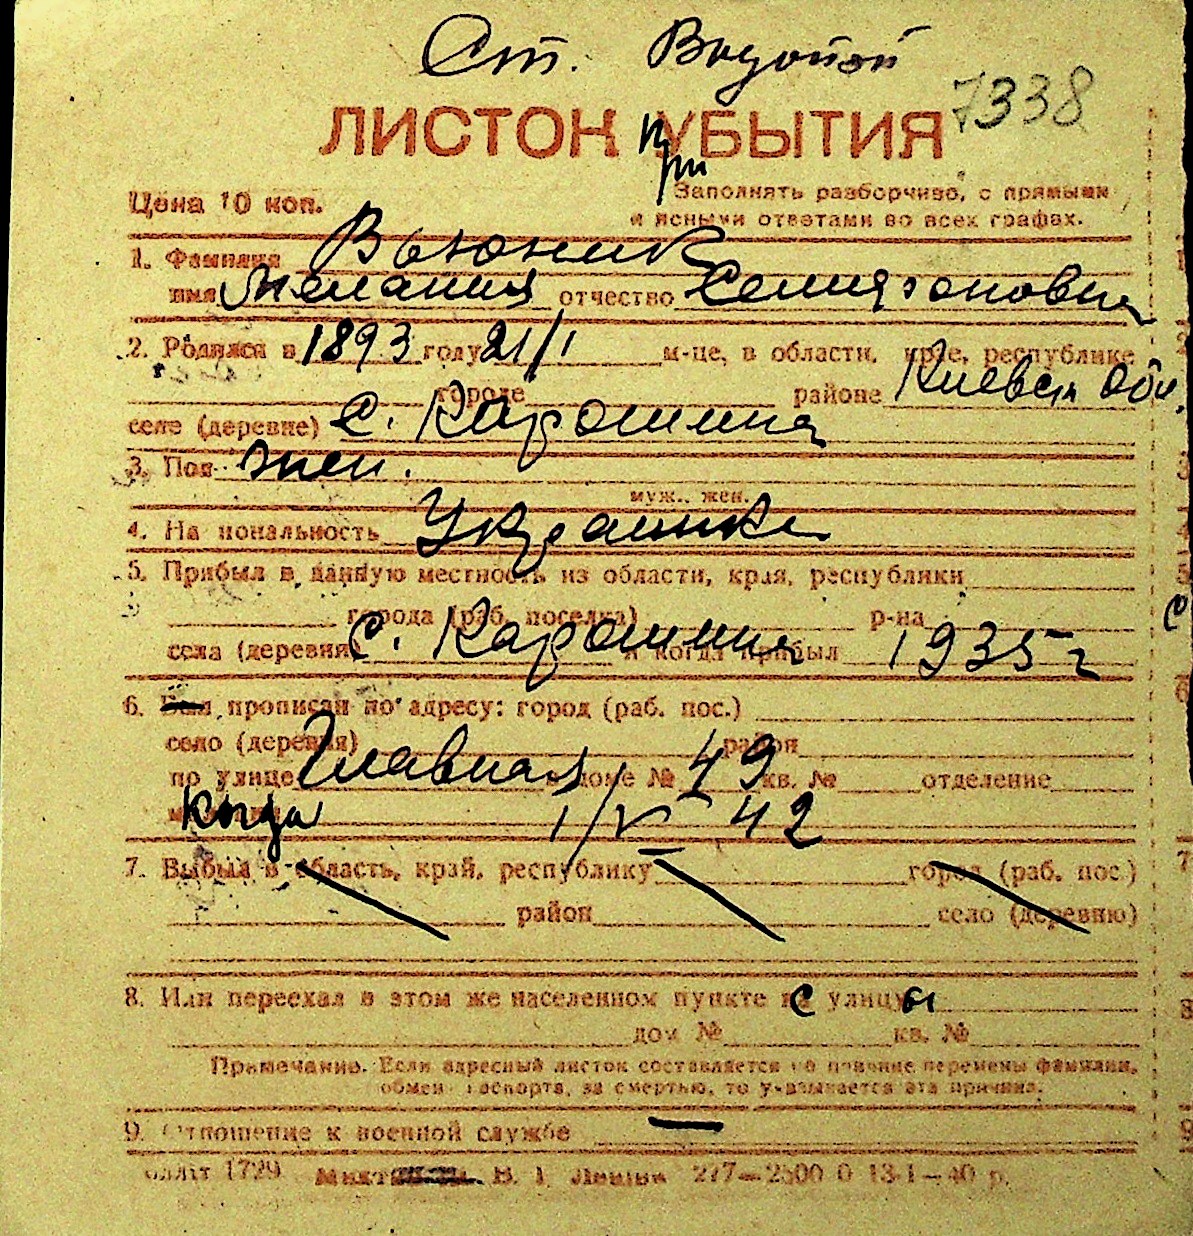 Ст. Водопой
7338
ЛИСТОК УБЫТИЯ
При
Цена 10 коп.
Заполнять разборчиво, с прямыми
и ясными ответами во всех графах.
1. Фамилия Вьюник
имя Мелания отчество Семионовна
2. Родился в 1893 году 21/I м-це, в области, крае, республике
городе районе Киевск обл.
селе (деревне) с. Карошина
3. Пол жен.
муж., жен.
4. На иональность Украинка
5. Прибыл в данную местность из области, края, республики
города (раб. поселка) р-на
села (деревня) с. Карошина и когда прибыл 1935 г
6. Был прописан по адресу: город (раб. пос.)
село (деревня) район
по улице Главная доме № 49 кв. № отделение
когда 1/V 42
7. Выбыл в область, край, республику город (раб. пос.)
район село (деревню)
8. Или переехал в этом же населенном пункте с улицы
дом № кв. №
Примечание. Если адресный листок составляется по причине перемены фамилии,
обмен паспорта, за смертью, то указывается эта причина.
9. Отношение к военной службе —
1729 В. І. Леніна 277—2500 0 13-1—40 р.